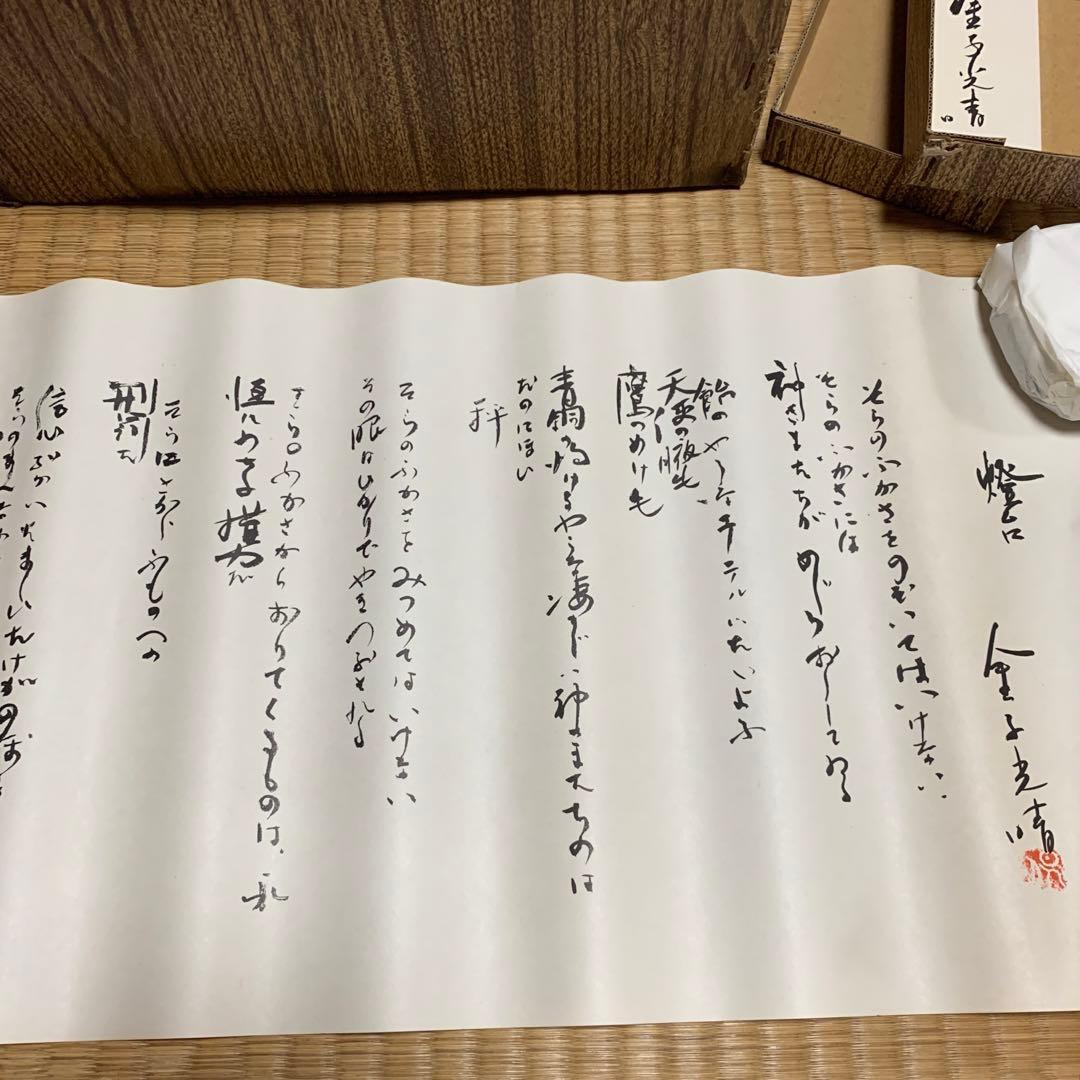 燈台
金子光晴
そらのふかさをのぞいてはいけない
そらのふかさには
神さまたちがめじろおしてゐる
飴のやうなエーテルにただよふ
天使の腋毛
鷹のぬけ毛
青銅の灼けるやうな凄じい神さまたちのは
だのにほい
秤
そらのふかさをみつめてはいけない
その眼はひかりでやきつぶされる
そらのふかさからおりてくるものは、永
にわたる權力だ
そらにさからふものへの
刑罰だ
信心ぶかいたましいだけがのぼる
金子光晴